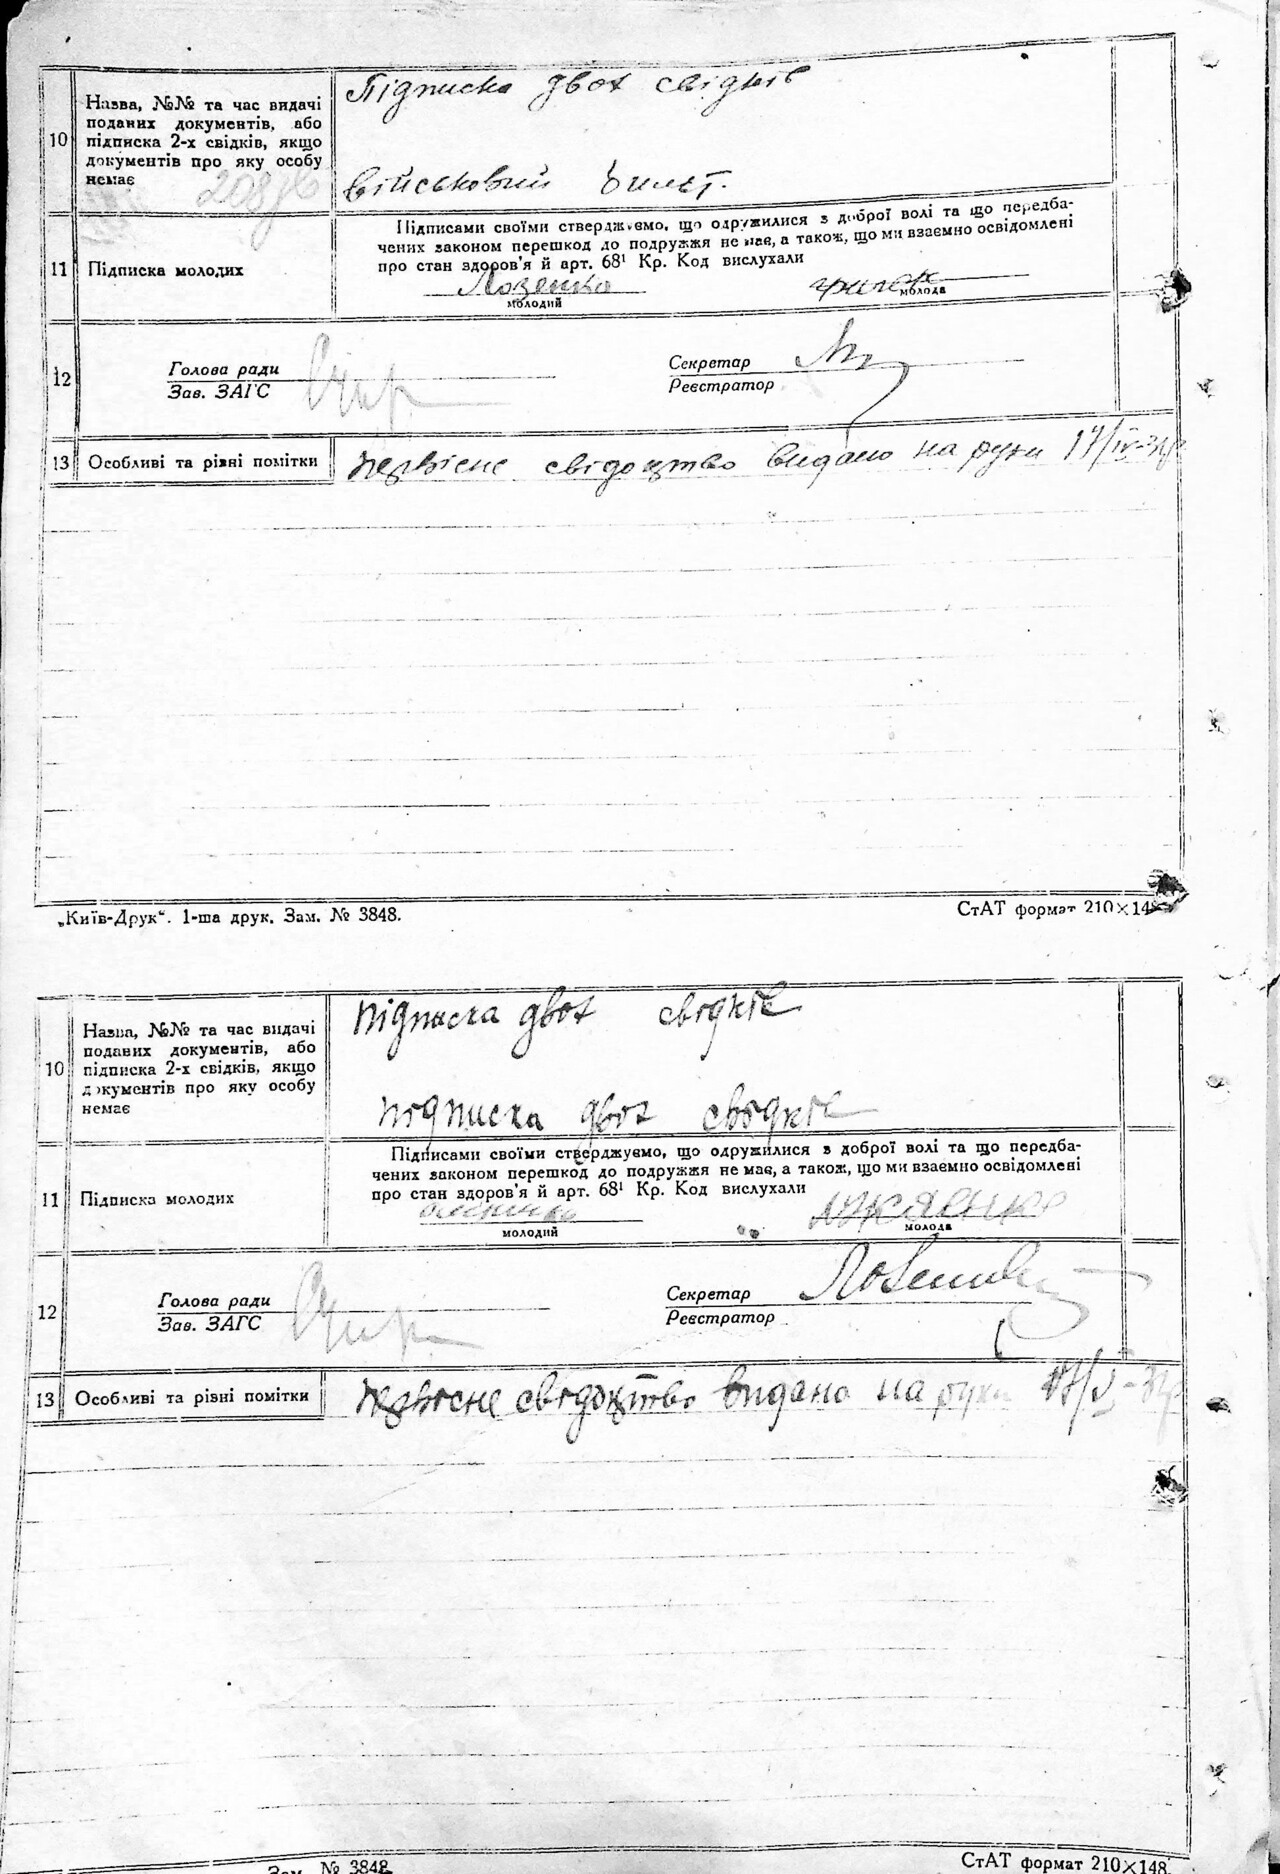 10
Назва, №№ та час видачі
поданих документів, або
підписка 2-х свідків, якщо
документів про яку особу
немає
Підписка двох свідків
військовий білет.
11
Підписка молодих
Підписами своїми стверджуємо, що одружилися з доброї волі та що передба-
чених законом перешкод до подружжя не має, а також, що ми взаємно освідомлені
про стан здоров'я й арт. 68¹ Кр. Код вислухали
Лозенко
молодий
молода
12
Голова ради
Зав. ЗАГС
Секретар
Реєстратор
13
Особливі та різні помітки
первісне свідоцтво видано на руки 17/IV-
„Київ-Друк“. 1-ша друк. Зам. № 3848.
СтАТ формат 210×148
10
Назва, №№ та час видачі
поданих документів, або
підписка 2-х свідків, якщо
документів про яку особу
немає
підписка двох свідків
підписка двох свідків
11
Підписка молодих
Підписами своїми стверджуємо, що одружилися з доброї волі та що передба-
чених законом перешкод до подружжя не має, а також, що ми взаємно освідомлені
про стан здоров'я й арт. 68¹ Кр. Код вислухали
молодий
молода
12
Голова ради
Зав. ЗАГС
Секретар
Реєстратор
13
Особливі та різні помітки
первісне свідоцтво видано на руки
Зам. № 3848.
СтАТ формат 210×148.